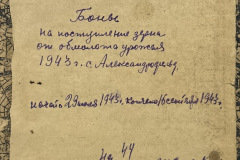 Боны
на поступление зерна
от обмолота урожая
1943 г. с. Александродар.
начат 29 июля 1943 г. кончен 16 сентября 1943 г.
на 44